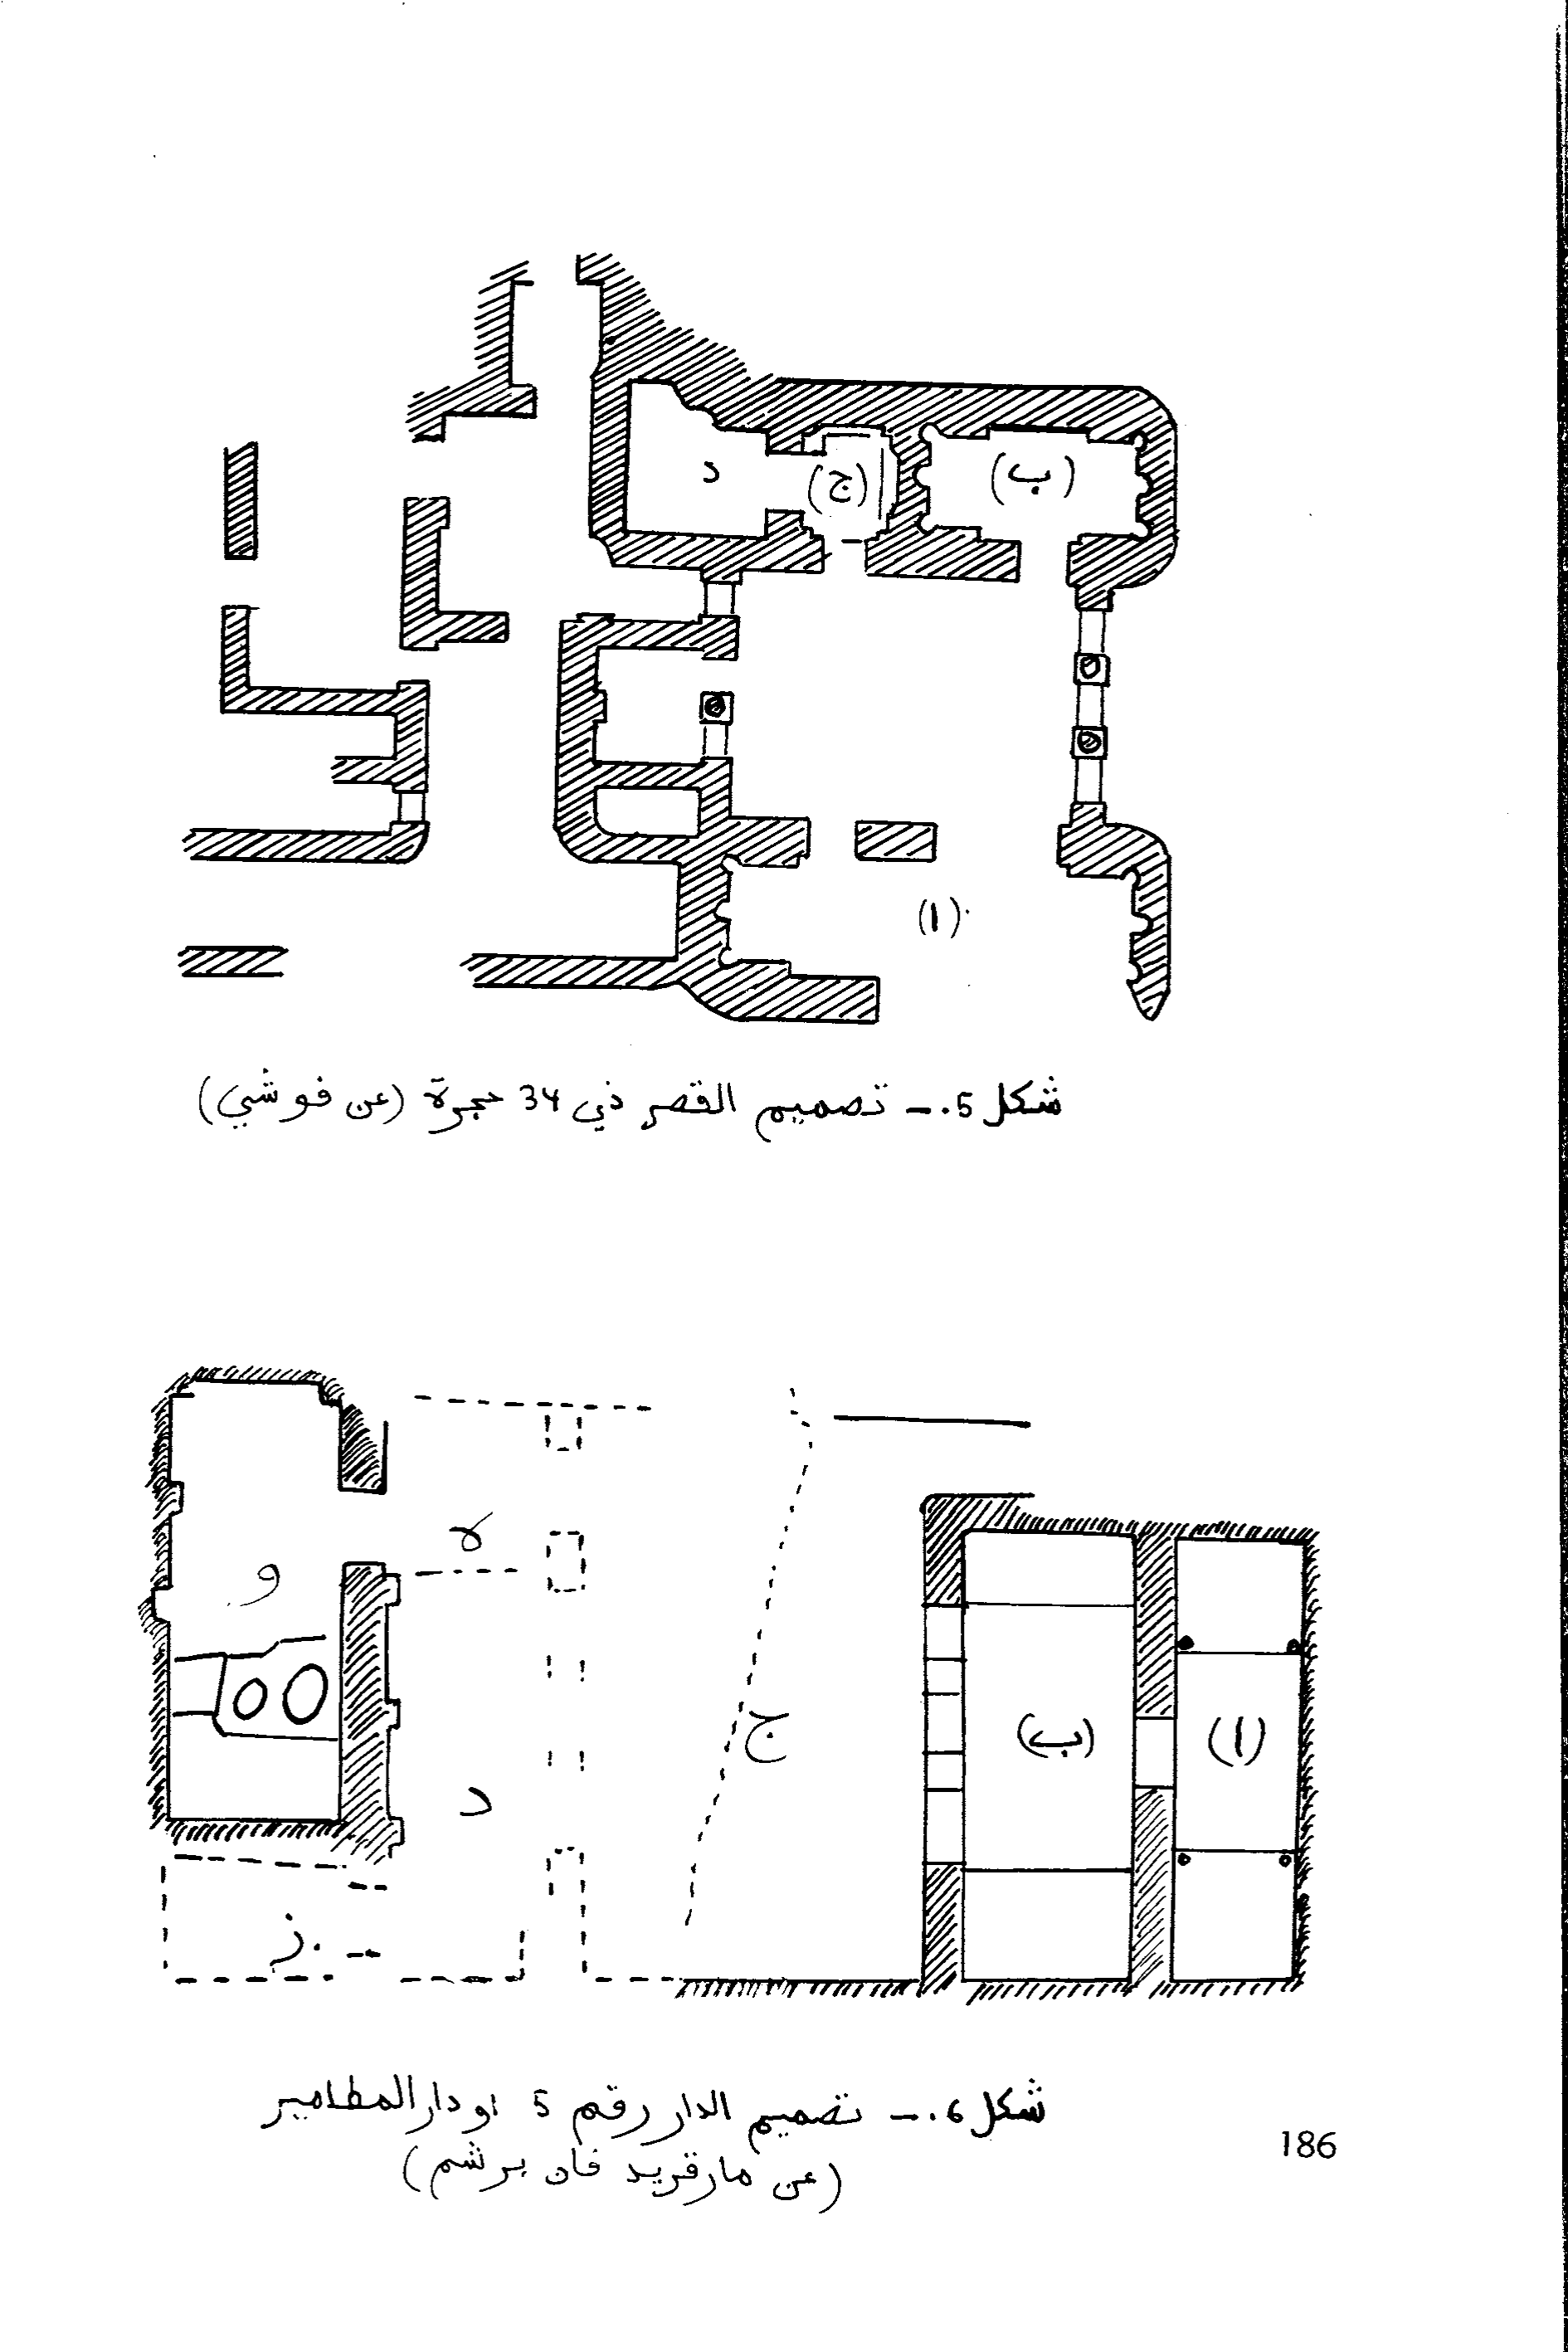 د
(ج)
(ب)
(ا)
شكل 5.ـ تصميم القصر ذي 34 حجرة (عن فوشي)
ه
و
ج
(ب)
(ا)
د
ز
شكل 6.ـ تصميم الدار رقم 5 او دار المطامير
(عن مارقريد فان برشم)
186